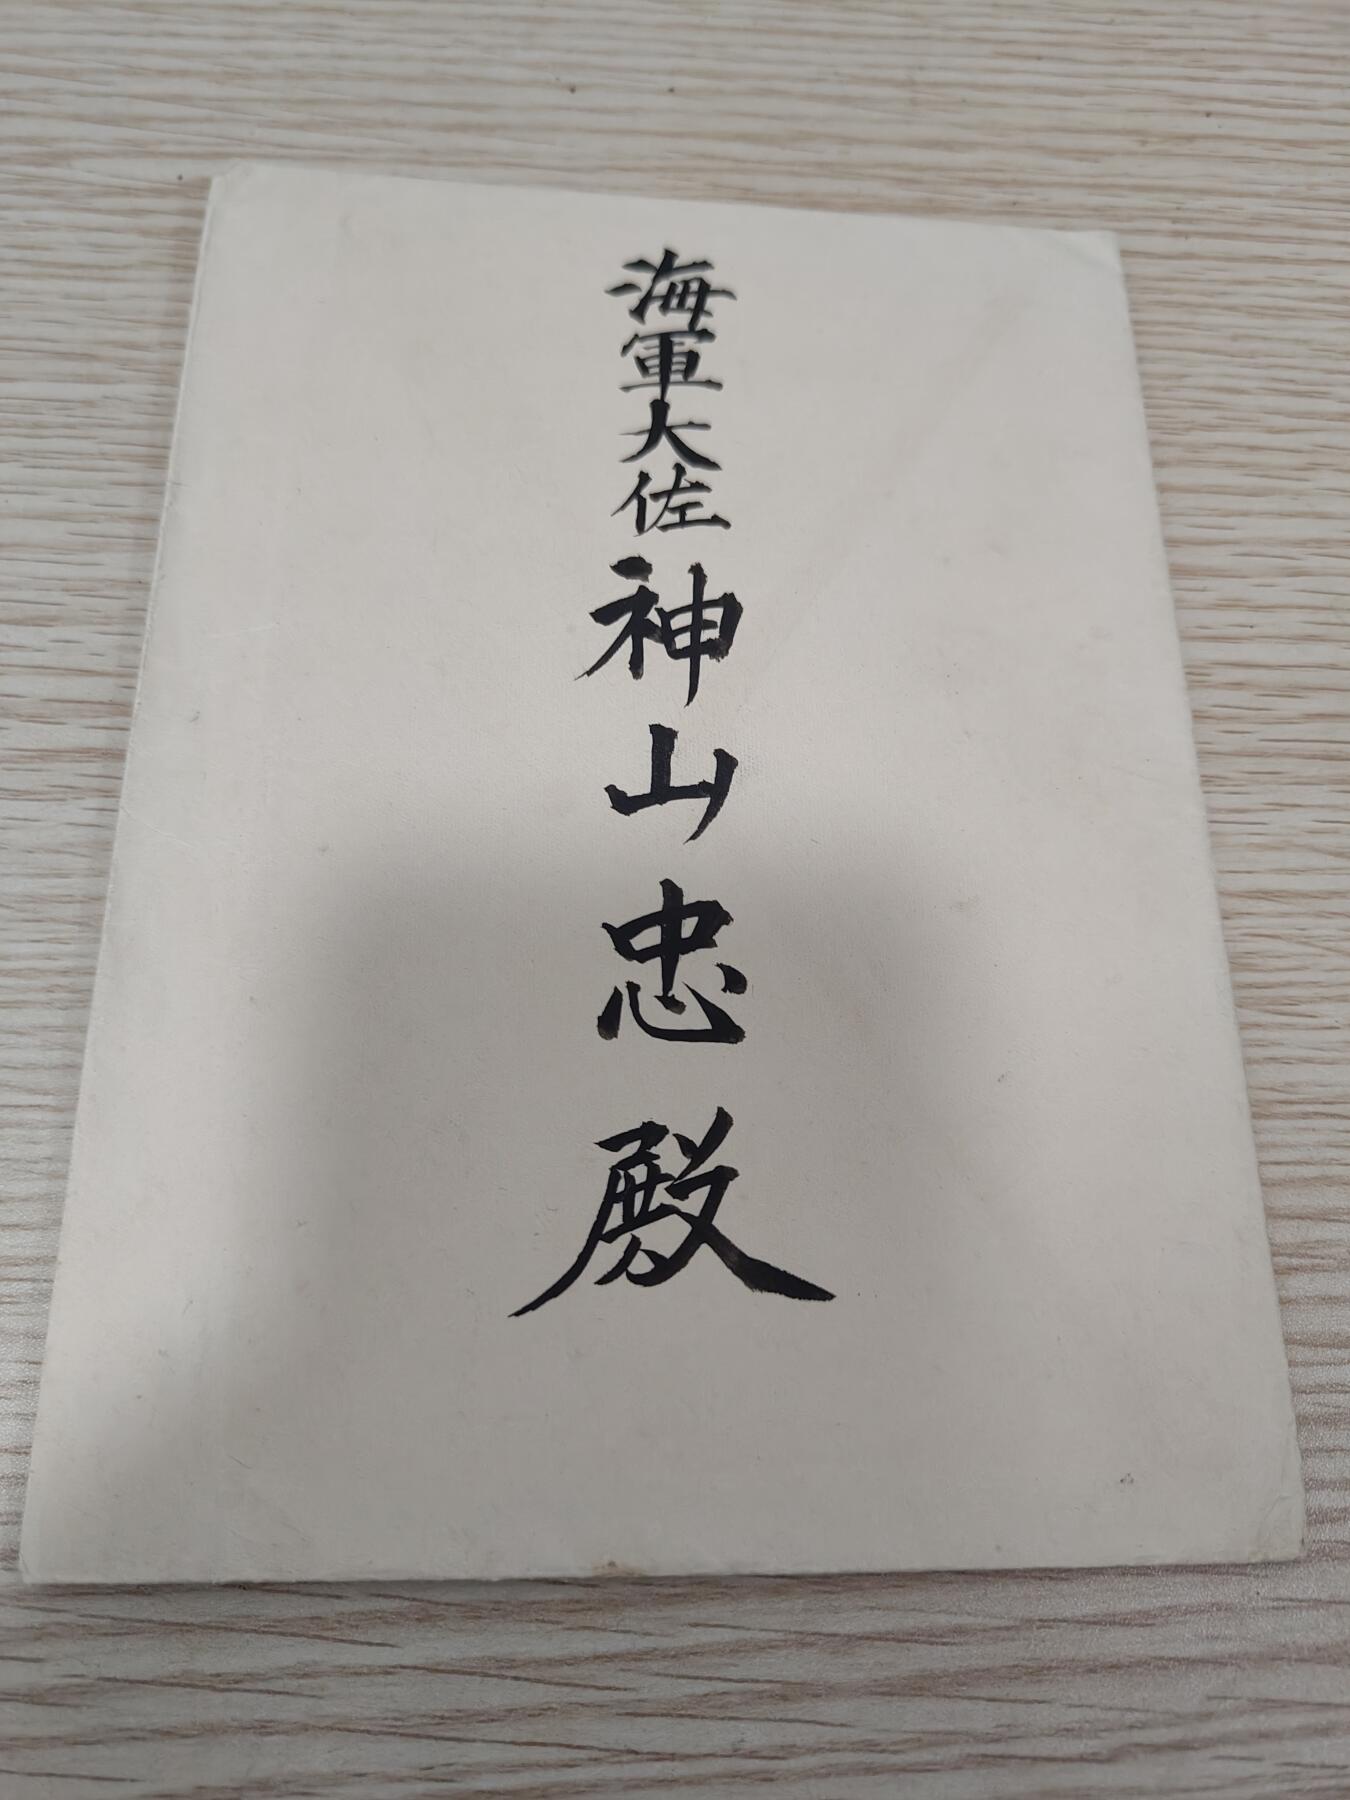 海軍大佐神山忠殿